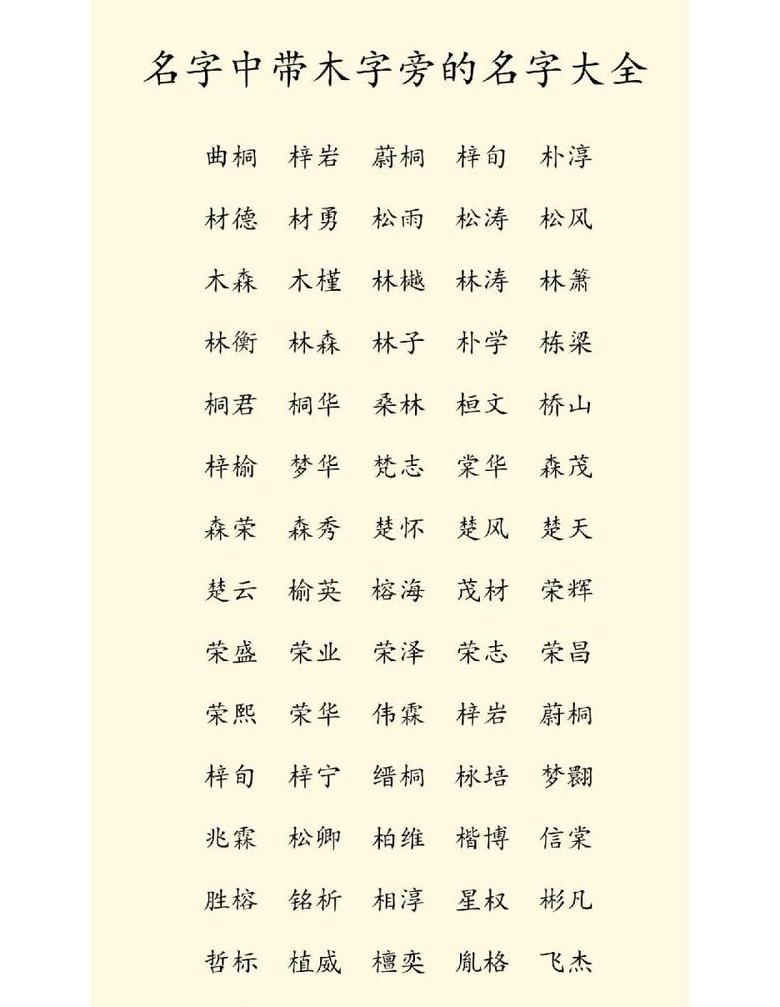 名字中带木字旁的名字大全
曲桐 梓岩 蔚桐 梓旬 朴淳
材德 材勇 松雨 松涛 松风
木森 木槿 林樾 林涛 林箫
林衡 林森 林子 朴学 栋梁
桐君 桐华 桑林 桓文 桥山
梓榆 梦华 梵志 棠华 森茂
森荣 森秀 楚怀 楚风 楚天
楚云 榆英 榕海 茂材 荣辉
荣盛 荣业 荣泽 荣志 荣昌
荣熙 荣华 伟霖 梓岩 蔚桐
梓旬 梓宁 缙桐 栐培 梦翾
兆霖 松卿 柏维 楷博 信棠
胜榕 铭析 相淳 星权 彬凡
哲标 植威 檀奕 胤格 飞杰